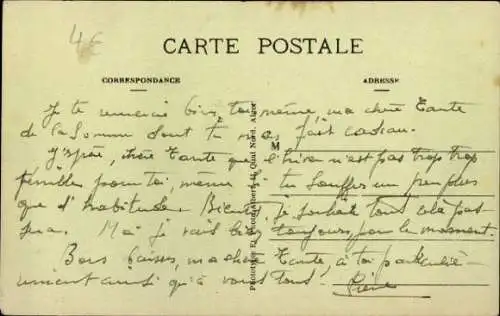 4€
CARTE POSTALE
CORRESPONDANCE
ADRESSE
Je te remercie bien, toi même, ma chère Tante
de la somme dont tu m'as fait cadeau.
J'espère, chère Tante que l'hiver n'est pas trop trop
pénible pour toi, même si tu souffres un peu plus
que d'habitude. Bientôt, je souhaite tout cela passera.
Moi je vais bien toujours, pour le moment.
Bons baisers, ma chère Tante à toi particulière-
ment ainsi qu'à vous tous!
Pierre